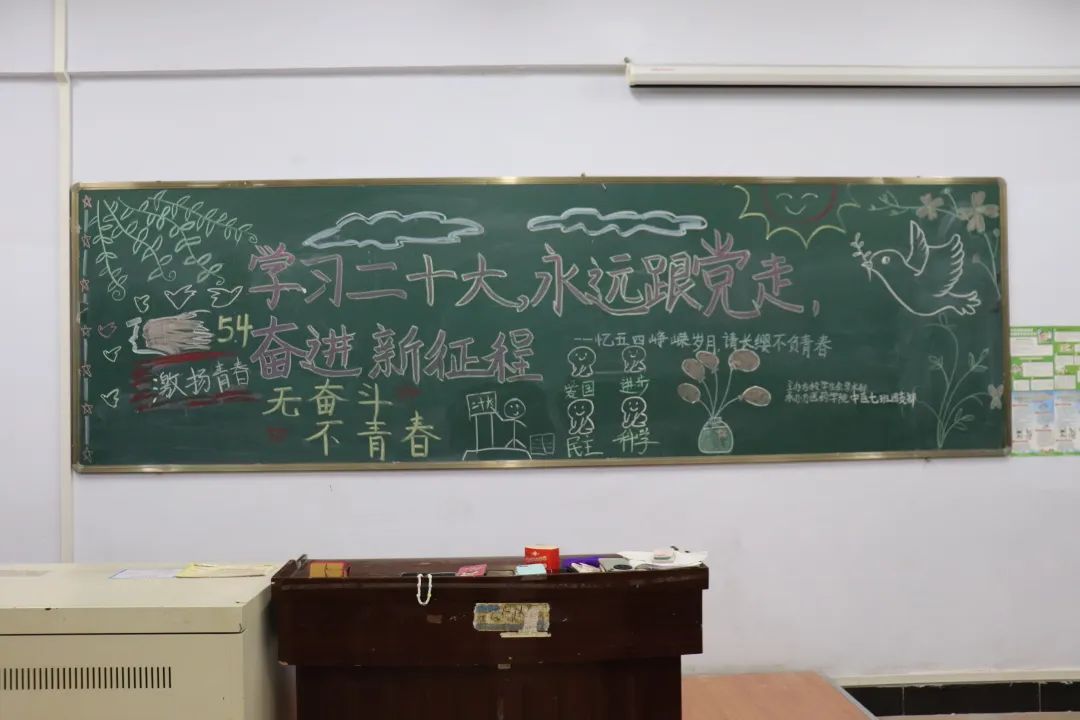 学习二十大,永远跟党走,
奋进新征程
54
激扬青春
——忆五四峥嵘岁月,请长缨不负青春
无奋斗
不青春
爱国
进步
民主
科学
承办方医药学院中医七班团支部